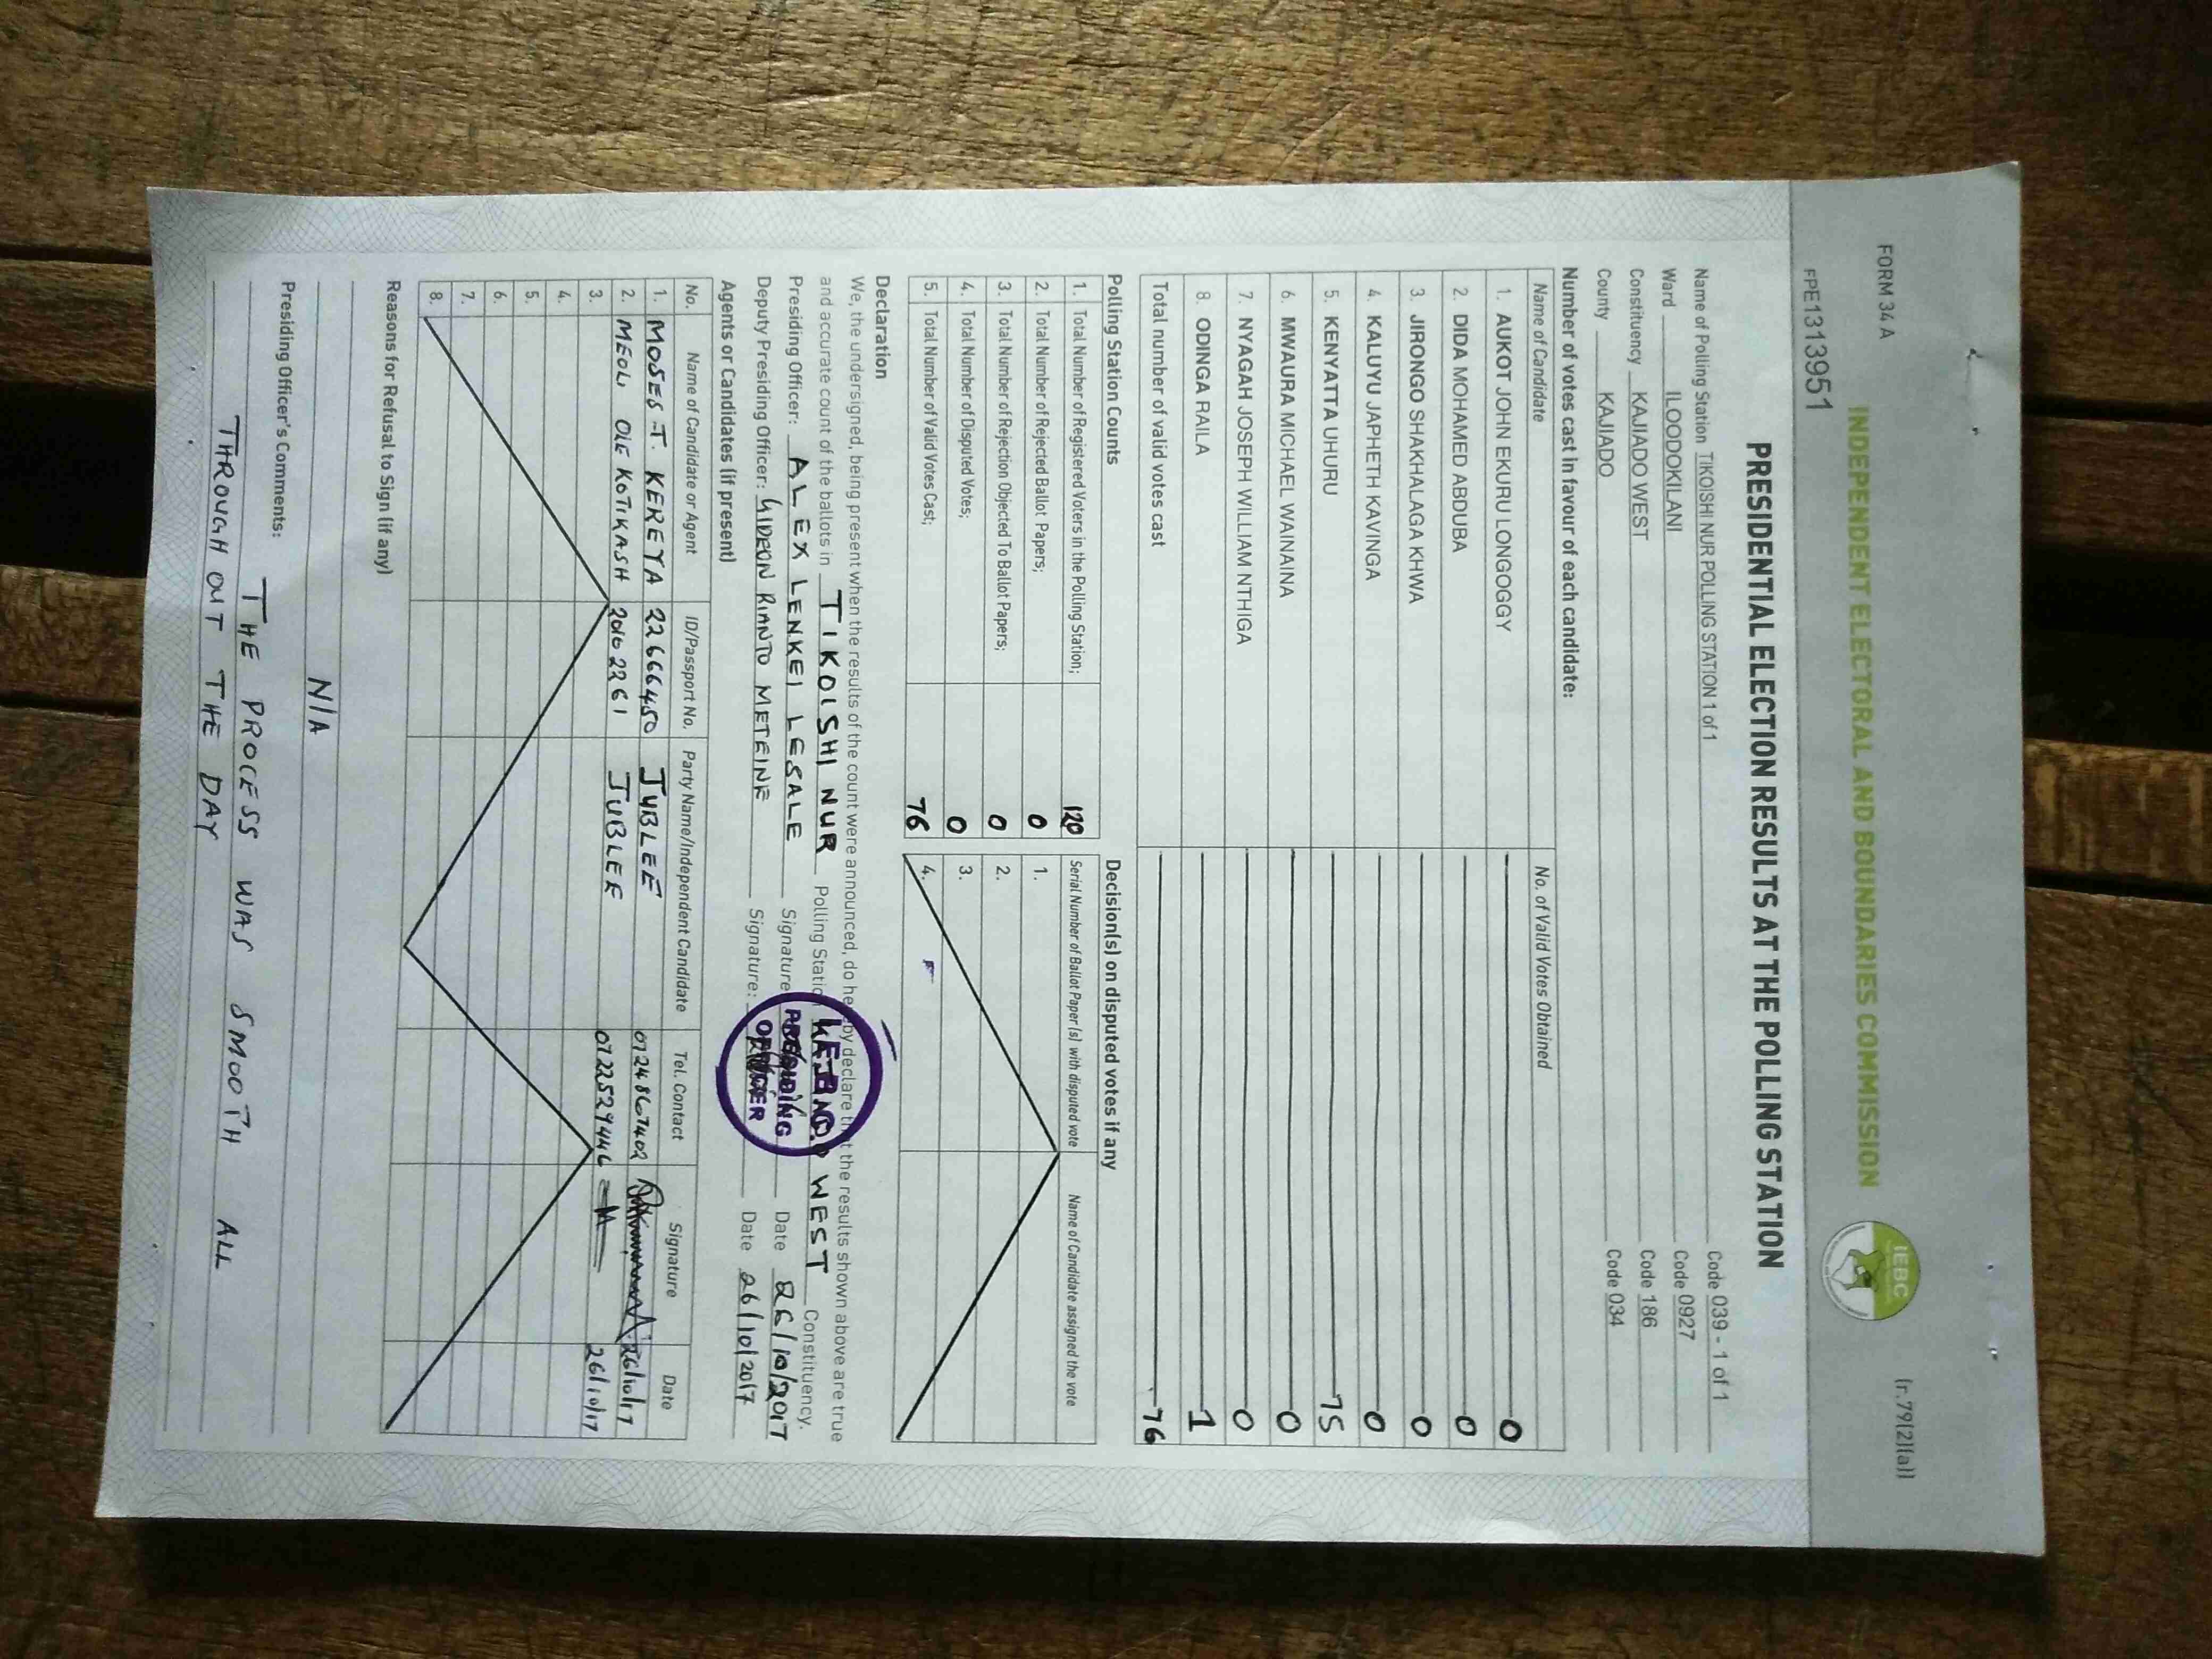 FORM 34 A
(r.79(2)(a))
INDEPENDENT ELECTORAL AND BOUNDARIES COMMISSION
IEBC
FPE1313951
PRESIDENTIAL ELECTION RESULTS AT THE POLLING STATION
Name of Polling Station TIKOISHI NUR POLLING STATION 1 of 1 Code 039 - 1 of 1
Ward ILOODOKILANI Code 0927
Constituency KAJIADO WEST Code 186
County KAJIADO Code 034
Number of votes cast in favour of each candidate:
Name of Candidate No. of Valid Votes Obtained
1. AUKOT JOHN EKURU LONGOGGY 0
2. DIDA MOHAMED ABDUBA 0
3. JIRONGO SHAKHALAGA KHWA 0
4. KALUYU JAPHETH KAVINGA 0
5. KENYATTA UHURU 75
6. MWAURA MICHAEL WAINAINA 0
7. NYAGAH JOSEPH WILLIAM NTHIGA 0
8. ODINGA RAILA 1
Total number of valid votes cast 76
Polling Station Counts
1. Total Number of Registered Voters in the Polling Station; 120
2. Total Number of Rejected Ballot Papers; 0
3. Total Number of Rejection Objected To Ballot Papers; 0
4. Total Number of Disputed Votes; 0
5. Total Number of Valid Votes Cast; 76
Decision(s) on disputed votes if any
Serial Number of Ballot Paper(s) with disputed vote Name of Candidate assigned the vote
1.
2.
3.
4.
Declaration
We, the undersigned, being present when the results of the count were announced, do hereby declare that the results shown above are true
and accurate count of the ballots in TIKOISHI NUR Polling Station WEST Constituency.
Presiding Officer: ALEX LENKEI LESALE Signature Date 26/10/2017
Deputy Presiding Officer: GIDEON RIANTO METEINE Signature: Date 26/10/2017
PRESIDING
OFFICER
Agents or Candidates (if present)
No. Name of Candidate or Agent ID/Passport No. Party Name/Independent Candidate Tel. Contact Signature Date
1. MOSES T. KEREYA 22666450 JUBLEE 0724867402 26/10/17
2. MEOLI OLE KOTIKASH 20102261 JUBLEE 0722529446 26/10/17
3.
4.
5.
6.
7.
8.
Reasons for Refusal to Sign (if any)
N/A
Presiding Officer's Comments:
THE PROCESS WAS SMOOTH ALL
THROUGH OUT THE DAY